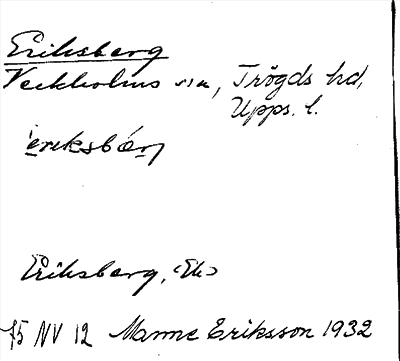 Eriksberg
Veckholms sn, Trögds hd,
Upps. l.
Eriksberg, (Ek)
75 NV 12 Manne Eriksson 1932